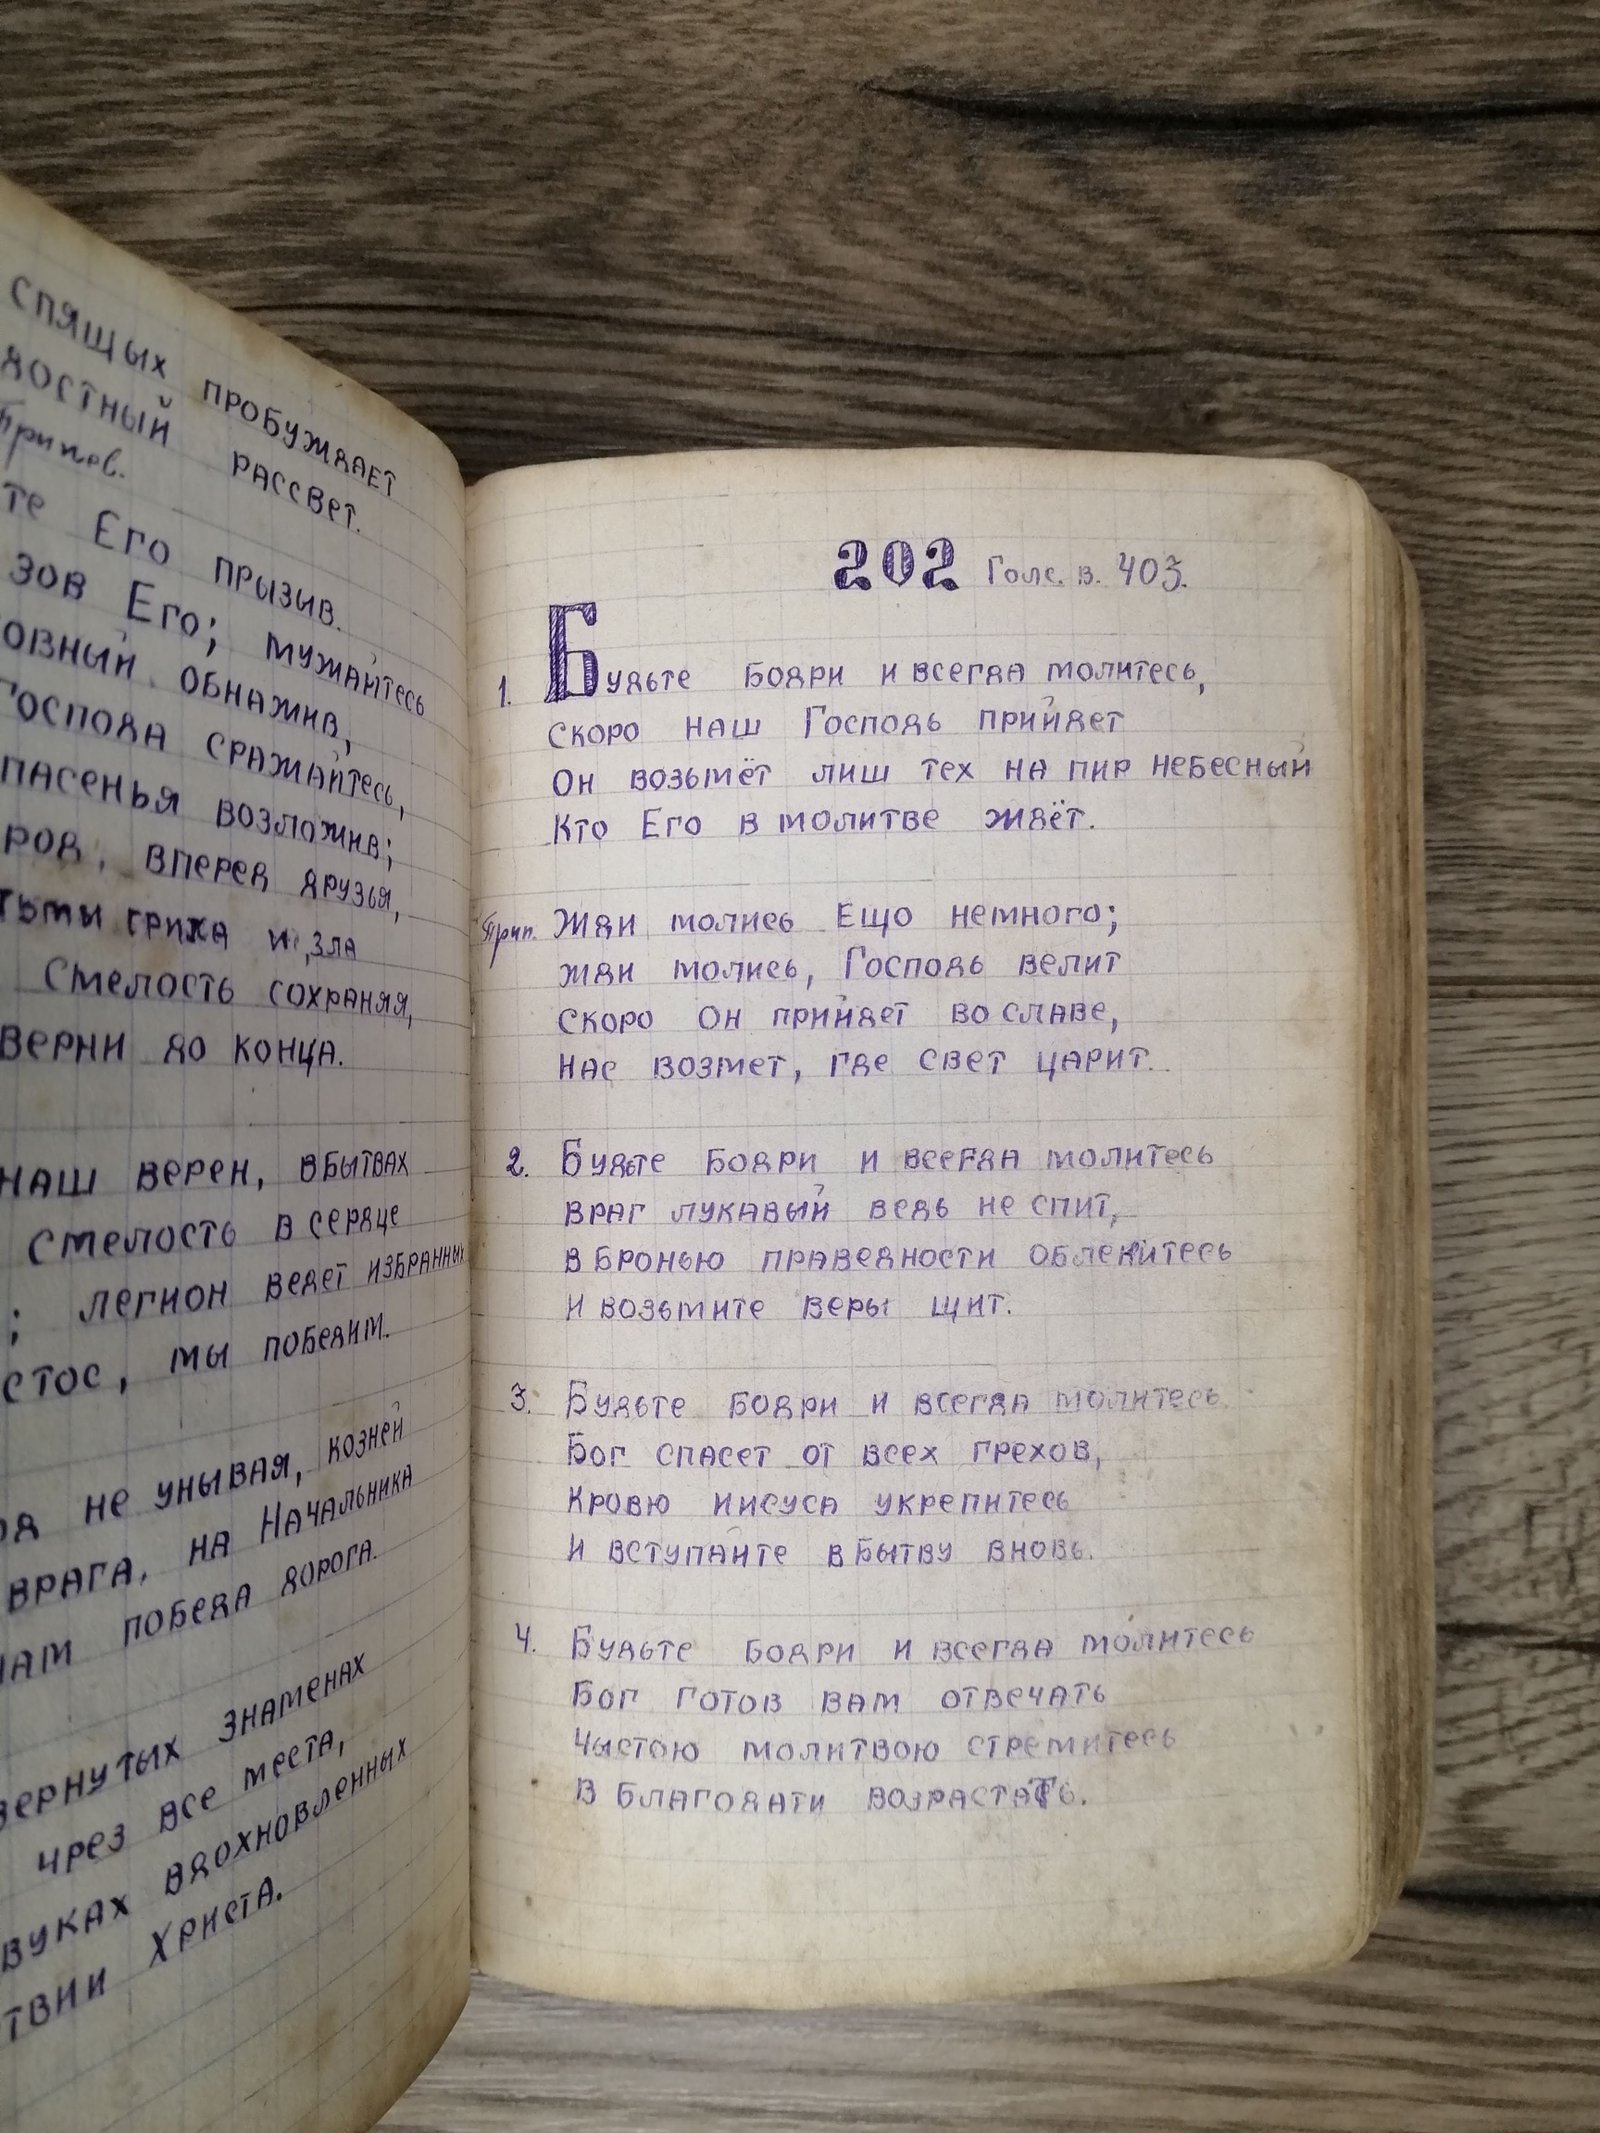 спящих пробуждает
достный рассвет.
Припев.
те Его призыв.
зов Его; мужайтесь
овный обнажив,
Господа сражайтесь,
пасенья возложив;
род, вперед друзья,
тьмы гриха и, зла
Смелость сохраняя,
верни до конца.
наш верен, в бытвах
Смелость в сердце
; легион ведет избранных
стос, мы победим.
не унывая, козней
врага, на Начальника
нам победа дорога.
вернутых знаменах
чрез все места,
вуках вдохновленных
твии Христа.
202 Голс. в. 403.
1. Будьте бодри и всегда молитесь,
Скоро наш Господь прийдет
Он возьмёт лиш тех на пир небесный
Кто Его в молитве ждёт.
Прип. Жди молись Ещо немного;
жди молись, Господь велит
Скоро Он прийдет во славе,
нас возмет, где свет царит.
2. Будьте бодри и всегда молитесь
враг лукавый ведь не спит,
в бронью праведности облекитесь
и возьмите веры щит.
3. Будьте бодри и всегда молитесь.
Бог спасет от всех грехов,
Кровю Иисуса укрепитесь
И вступайте в бытву вновь.
4. Будьте бодри и всегда молитесь
Бог готов вам отвечать
Чыстою молитвою стремитесь
В благодати возрастать.